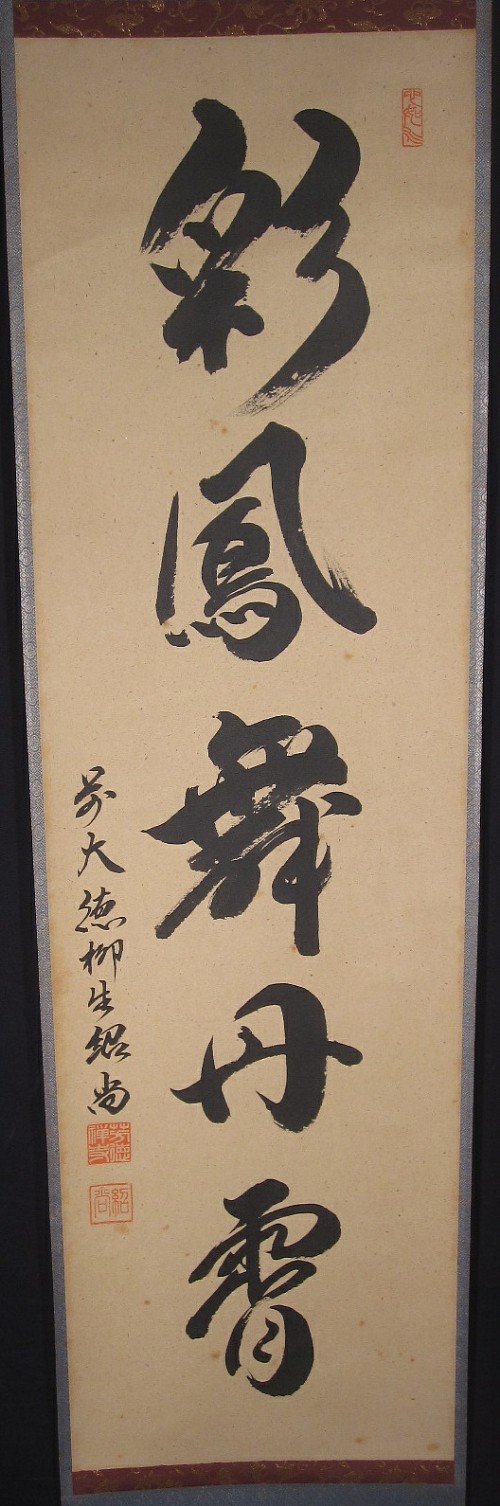 彩鳳舞丹霄
前大徳柳生紹尚
紹尚